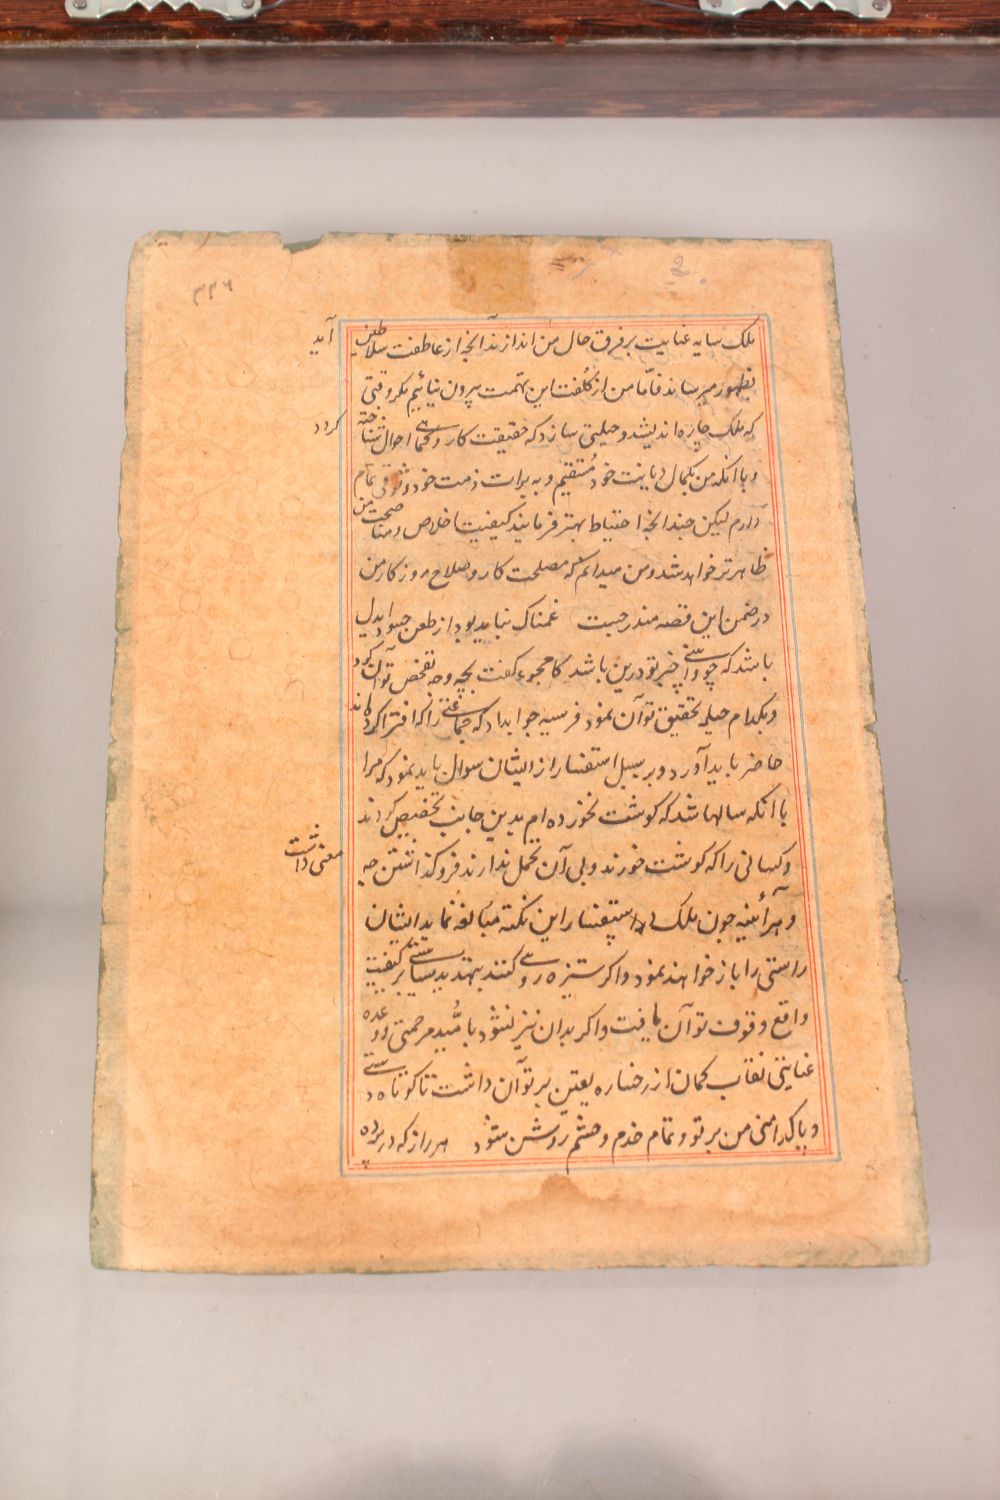 ۳۳۶
2
ملک سایه عنایت بر فرق حال من اندازند آنچه از عاطفت سلاطین آید
بظهور میرساند فاما من از کلفت این تهمت بیرون نیایم مگر وقتی
که ملک چاره اندیشد و حیلتی سازد که حقیقت کار و کماهی احوال شناخته گردد
و با آنکه من بکمال دیانت خود مستقیم و به براءت ذمت خود وثوقی تمام
دارم لیکن چندانچه احتیاط بهتر فرمایند کیفیت اخلاص و مناصحت من
ظاهرتر خواهد شد و من میدانم که مصلحت کار و صلاح روزگار من
در ضمن این قصه مندرجست غمناک نباید بود از طعن حسود ایدل
باشد که چو وابینی خیر تو درین باشد کامجوء گفت بچه وجه تفحص توان کرد
و بکدام حیله تحقیق توان نمود فریسه جواب داد که جماعتی را که افترا کرده‌اند
حاضر باید آورد و بر سبیل استفسار از ایشان سوال باید نمود که مرا
با آنکه سالها شد که گوشت نخورده‌ام بدین جانب تخصیص کردند
و کسانی را که گوشت خورند و بی آن تحمل ندارند فروگذاشتن چه معنی داشت
و هرآئینه چون ملک در استفسار این نکته مبالغه نماید ایشان
راستی را باز خواهند نمود و اگر ستیزه روئی کنند بتهدید سیاستی بر کیفیت
واقع وقوف توان یافت و اگر بدان نیز نشود بامید مرحمتی و وعده
عنایتی نقاب گمان از رخساره یقین بر توان داشت تا کوتاه دستی
و پاکدامنی من بر تو و تمام خدم و حشم روشن شود هر راز که در پرده